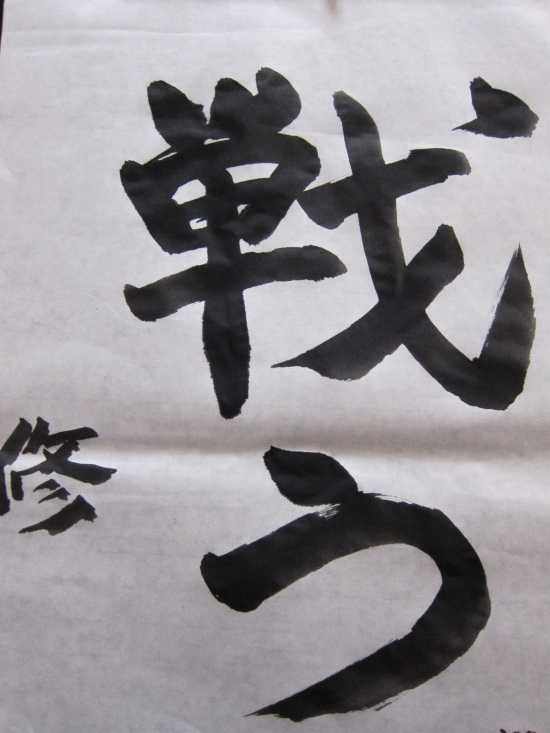 戦う
修